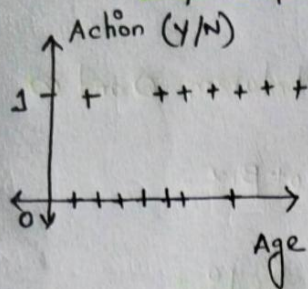 Action (Y/N)
1
0
Age